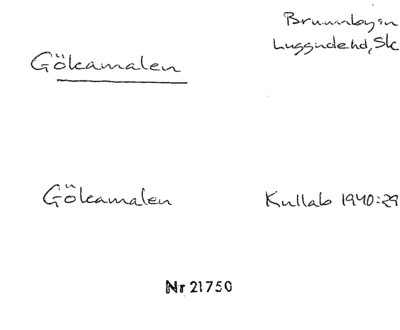 Brunnbysn
Luggudehd, Sk
Gökamalen
Gökamalen Kullab 1940:29
Nr 21750